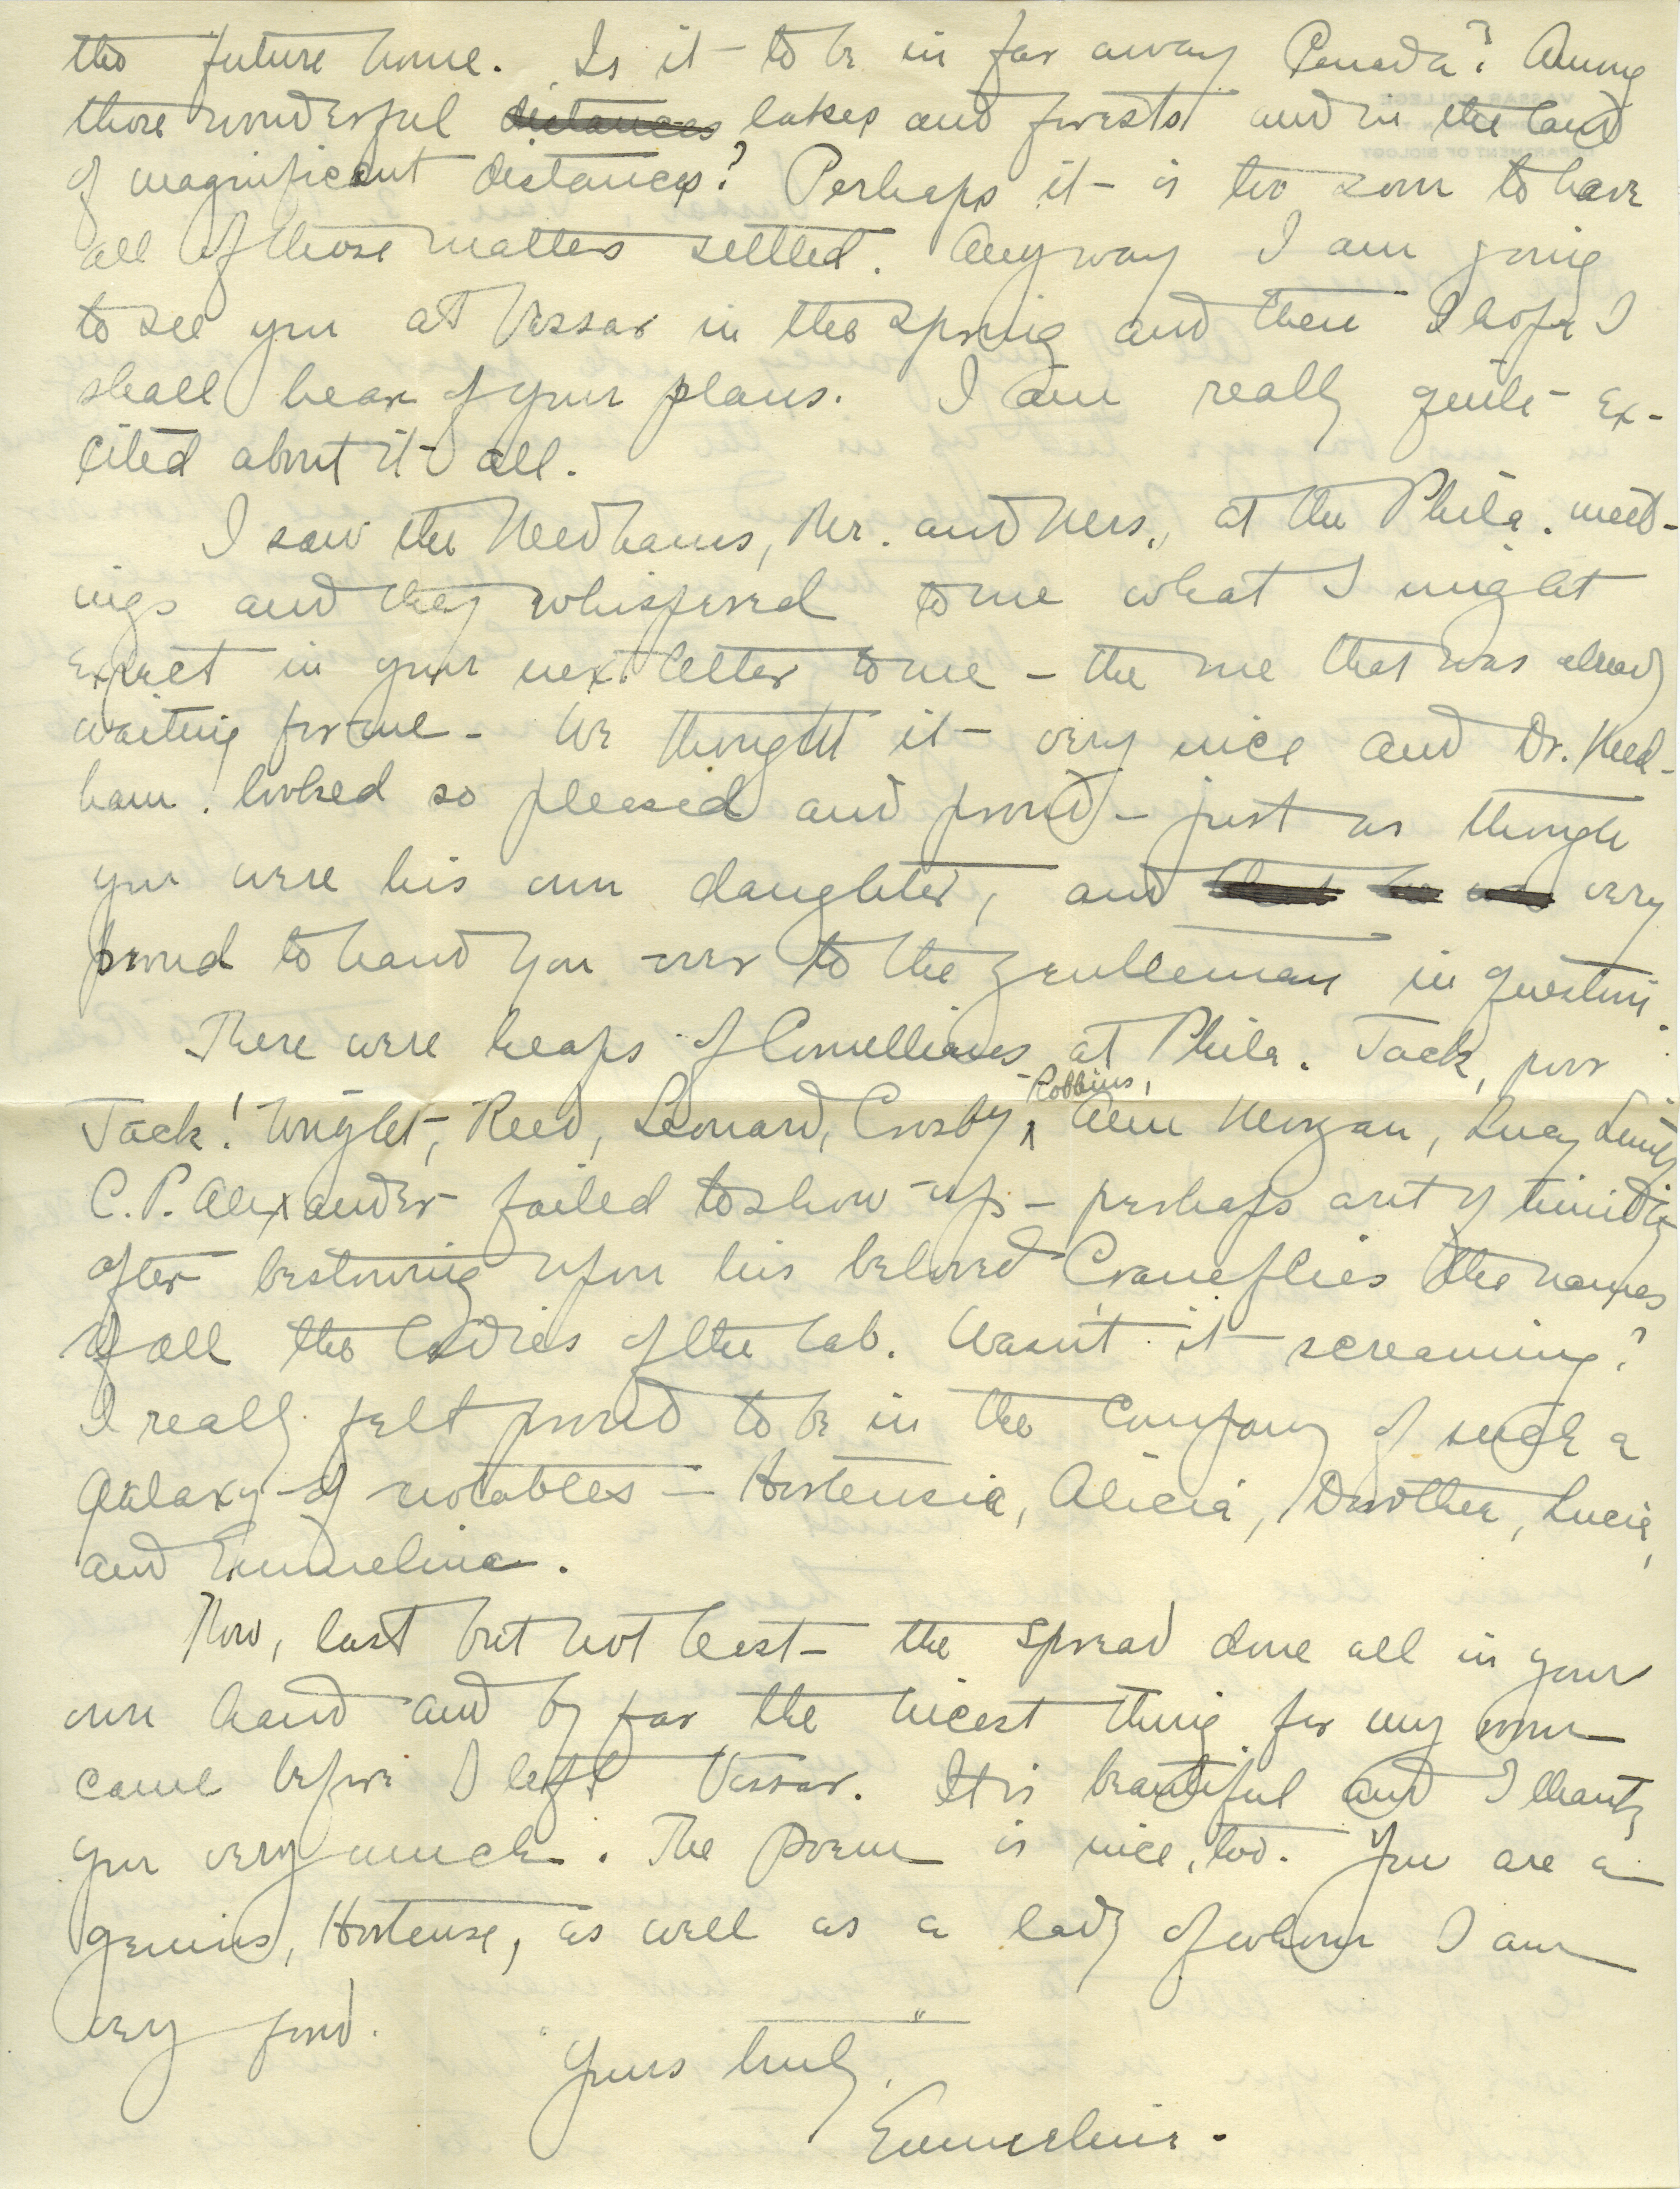 the future home. Is it to be in far away Canada? Among
those wonderful distances lakes and forests and in the land
of magnificent distances? Perhaps it is too soon to have
all of those matters settled. Anyway I am going
to see you at Vassar in the spring and then I hope I
shall hear of your plans. I am really quite ex-
cited about it all.
I saw the Needhams, Mr. and Mrs., at the Phila. meet-
ings and they whispered to me what I might
expect in your next letter to me - the one that was already
waiting for me - We thought it very nice and Dr. Need-
ham looked so pleased and proud - just as though
you were his own daughter, and very
proud to hand you over to the gentleman in question.
There were heaps of Cornellians at Phila. Jack, poor
Jack! Wright, Reed, Leonard, Crosby, Robbins, Ann Morgan, Lucy
C. P. Alexander failed to show up - perhaps out of timidity
after bestowing upon his beloved Craneflies the names
of all the ladies of the lab. Wasn't it screaming?
I really felt proud to be in the company of such a
galaxy of notables - Hortensia, Alicia, Dorothea, Lucia,
and Emmelina.
Now, last but not least - the spread done all in your
own hand and by far the nicest thing for my room
came before I left Vassar. It is beautiful and I thank
you very much. The poem is nice, too. You are a
genius, Hortense, as well as a lady of whom I am
very fond.
Yours truly,
Emmeline.